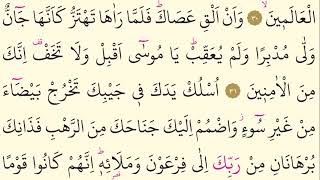 الْعَالَمِينَۙ ﴿٣٠﴾ وَاَنْ اَلْقِ عَصَاكَۜ فَلَمَّا رَاٰهَا تَهْتَزُّ كَاَنَّهَا جَٓانٌّ
وَلّٰى مُدْبِرًا وَلَمْ يُعَقِّبْۜ يَا مُوسٰٓى اَقْبِلْ وَلَا تَخَفْ۠ اِنَّكَ
مِنَ الْاٰمِنِينَ ﴿٣١﴾ اُسْلُكْ يَدَكَ فِى جَيْبِكَ تَخْرُجْ بَيْضَٓاءَ
مِنْ غَيْرِ سُٓوءٍۘ وَاضْمُمْ اِلَيْكَ جَنَاحَكَ مِنَ الرَّهْبِ فَذَانِكَ
بُرْهَانَانِ مِنْ رَبِّكَ اِلٰى فِرْعَوْنَ وَمَلَا۬ئِهِ۪ۜ اِنَّهُمْ كَانُوا قَوْمًا